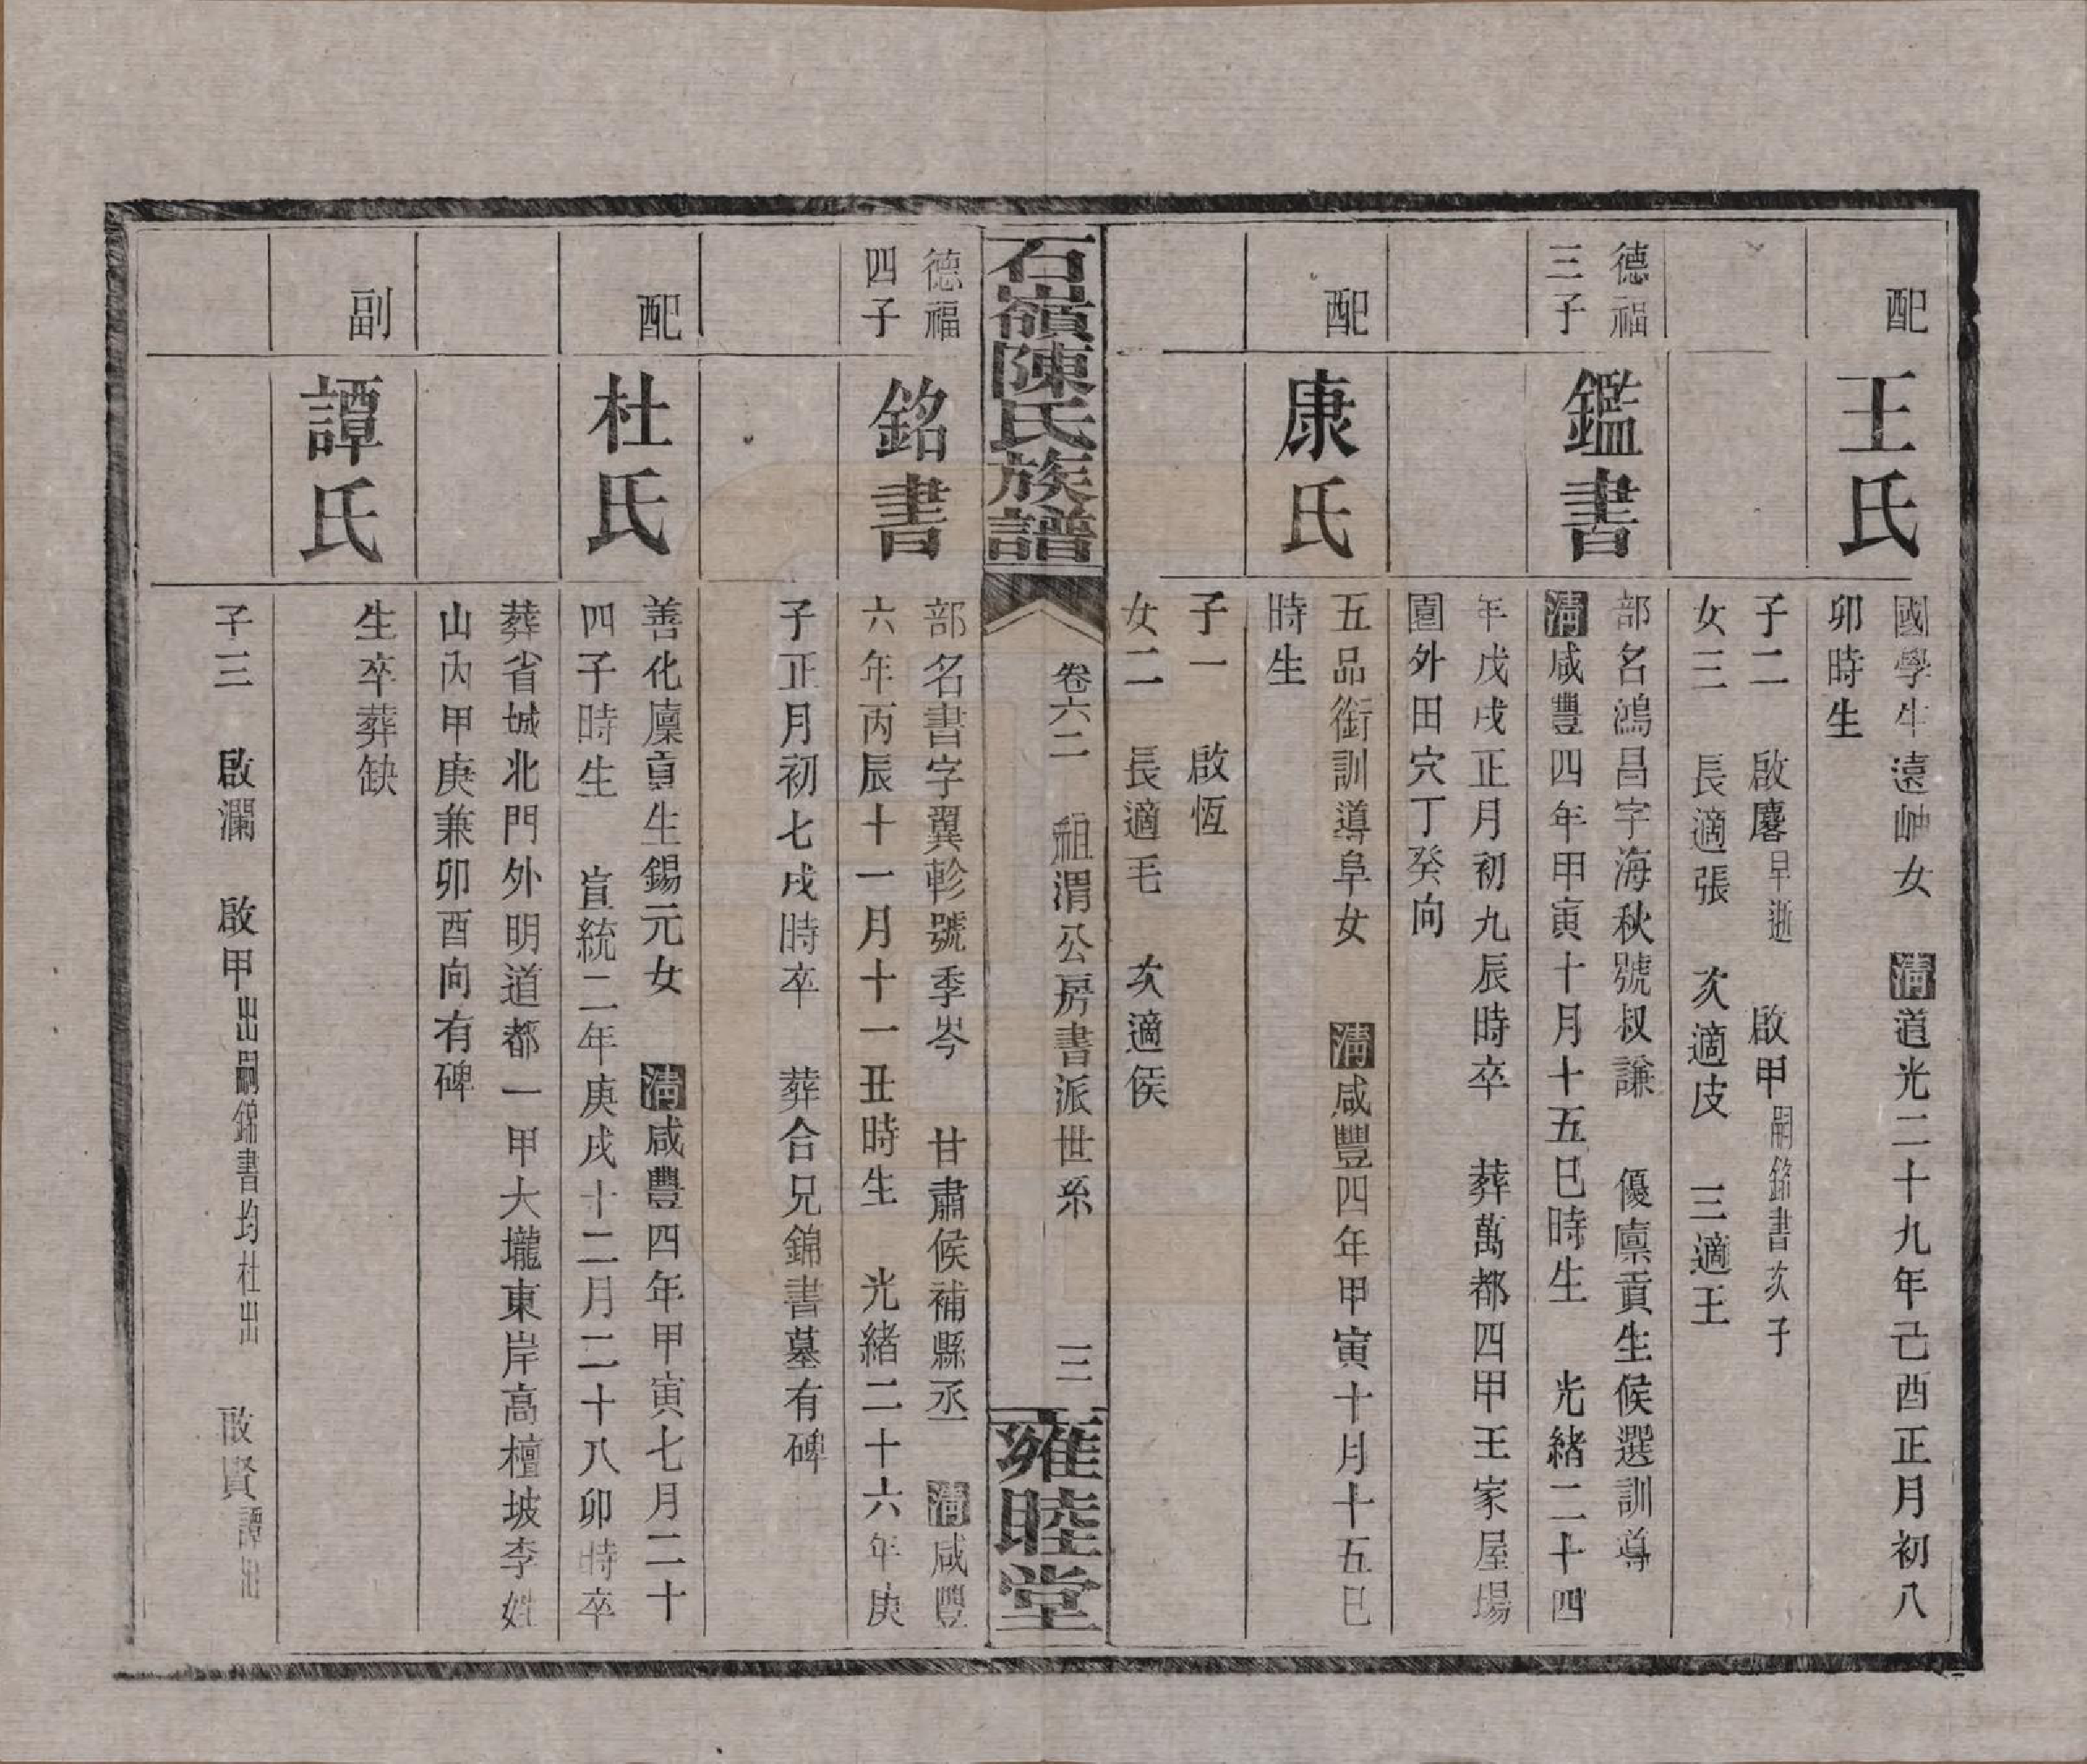 配
王氏
國學生遠岫女　清道光二十九年己酉正月初八
卯時生
子二　啟麐早逝　啟甲嗣銘書次子
女三　長適張　次適皮　三適王
德福
三子
鑑書
部名鴻昌字海秋號叔謙　優廩貢生候選訓導
清咸豐四年甲寅十月十五巳時生　光緒二十四
年戊戌正月初九辰時卒　葬萬都四甲王家屋場
園外田穴丁癸向
配
康氏
五品銜訓導阜女　清咸豐四年甲寅十月十五巳
時生
子一　啟恆
女二　長適毛　次適侯
石嶺陳氏族譜
卷六二　祖渭公房書派世系　三
雍睦堂
德福
四子
銘書
部名書字翼軫號季岑　甘肅候補縣丞　清咸豐
六年丙辰十一月十一丑時生　光緒二十六年庚
子正月初七戌時卒　葬合兄錦書墓有碑
配
杜氏
善化廩貢生錫元女　清咸豐四年甲寅七月二十
四子時生　宣統二年庚戌十二月二十八卯時卒
葬省城北門外明道都一甲大壠東岸高檀坡李姓
山內甲庚兼卯酉向有碑
副
譚氏
生卒葬缺
子三　啟瀾　啟甲出嗣錦書均杜出　啟賢譚出